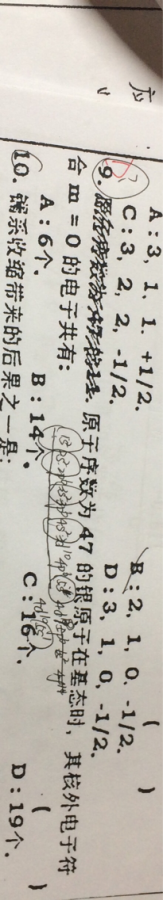 应
A:3, 1, 1, +1/2.  B:2, 1, 0, -1/2.
C:3, 2, 2, -1/2.  D:3, 1, 0, -1/2.
9. 原子序数为47的银原子在基态时,其核外电子符 ( )
合m=0的电子共有:
A:6个.  B:14个.  C:16个.  D:19个.
10. 镧系收缩带来的后果之一是: ( )